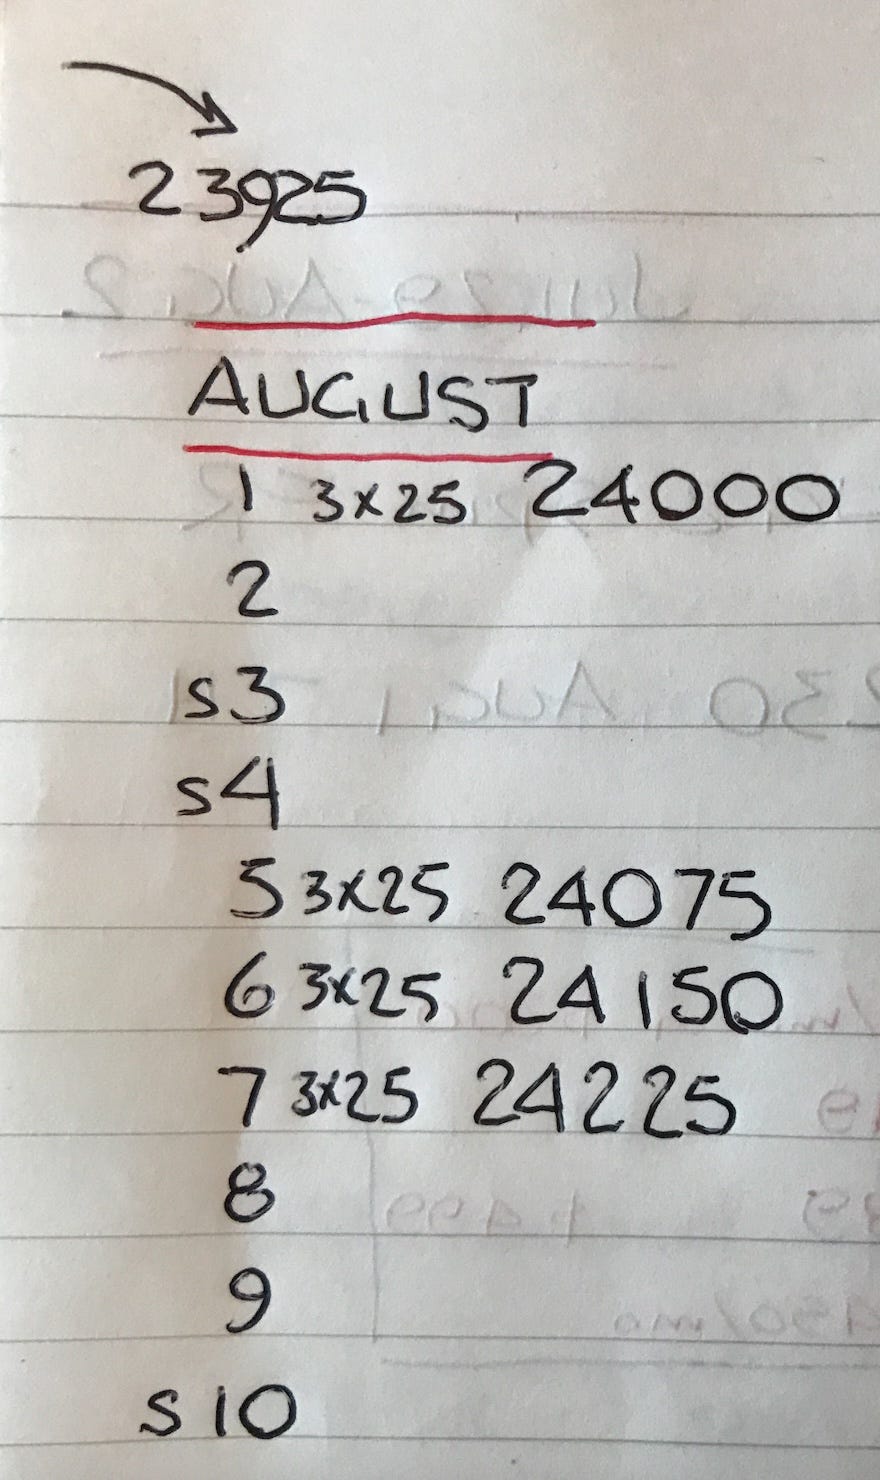 23925
AUGUST
1 3x25 24000
2
S3
S4
5 3x25 24075
6 3x25 24150
7 3x25 24225
8
9
S10